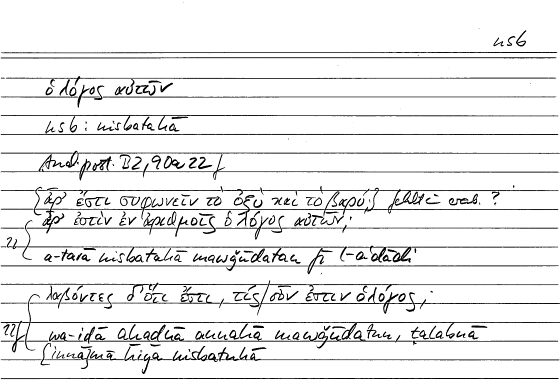 nsb
ὁ λόγος αὐτῶν
nsb : nisbatahā
Anal. post. B2, 90a22f
{ἆρ' ἔστι συμφωνεῖν τὸ ὀξὺ καὶ τὸ βαρύ;} fehlt i arab. ?
ἆρ' ἐστὶν ἐν ἀριθμοῖς ὁ λόγος αὐτῶν;
22 a-tarā nisbatahā mawǧūdatan fī l-aʿdādi
λαβόντες δ' ὅτι ἔστι, τίς/οὖν ἐστιν ὁ λόγος;
22f wa-iḏā aḫaḏnā annahā mawǧūdatun, ṭalabnā
{innamā hiya nisbatuhā